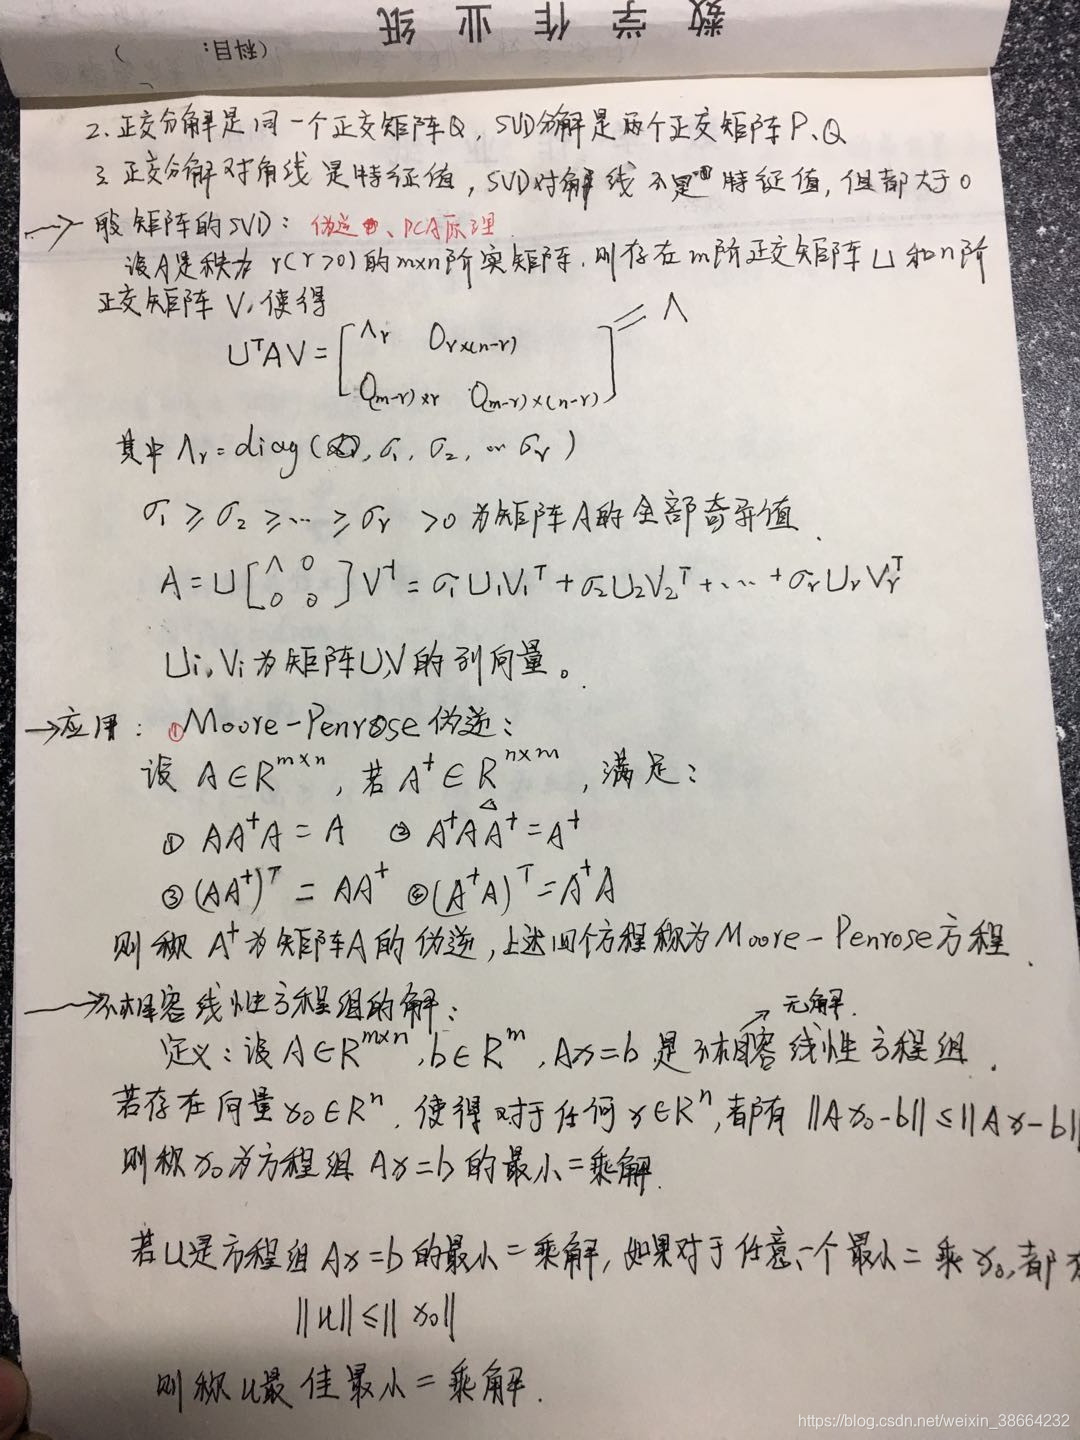 数学作业纸
(科目: )
2. 正交分解是同一个正交矩阵Q, SVD分解是两个正交矩阵P、Q
3. 正交分解对角线是特征值, SVD对解线不是特征值, 但都大于0
→ 般矩阵的SVD: 伪逆、PCA原理
设A是秩为 r(r>0)的m×n阶实矩阵, 则存在m阶正交矩阵U和n阶
正交矩阵 V, 使得
UᵀAV = [Λr O r×(n-r) ; O(m-r)×r O(m-r)×(n-r)] = Λ
其中 Λr = diag(σ1, σ2, … σr)
σ1 ≥ σ2 ≥ … ≥ σr >0 为矩阵A的全部奇异值.
A = U [Λ 0 ; 0 0] Vᵀ = σ1U1V1ᵀ + σ2U2V2ᵀ + … + σrUrVrᵀ
Ui, Vi 为矩阵U,V的列向量。
→ 应用: ① Moore-Penrose伪逆:
设 A∈R^{m×n}, 若 A⁺∈R^{n×m}, 满足:
① AA⁺A = A ② A⁺AA⁺ = A⁺
③ (AA⁺)ᵀ = AA⁺ ④ (A⁺A)ᵀ = A⁺A
则称 A⁺为矩阵A的伪逆, 上述四个方程称为Moore-Penrose方程.
→ 不相容线性方程组的解:
无解.
定义: 设A∈R^{m×n}, b∈R^m, Ax=b 是不相容线性方程组.
若存在向量x0∈Rⁿ, 使得对于任何x∈Rⁿ, 都有 ||Ax0-b|| ≤ ||Ax-b||
则称x0为方程组 Ax=b 的最小二乘解.
若U是方程组Ax=b的最小二乘解, 如果对于任意一个最小二乘x0, 都有
||u|| ≤ || x0||
则称u最佳最小二乘解.
https://blog.csdn.net/weixin_38664232